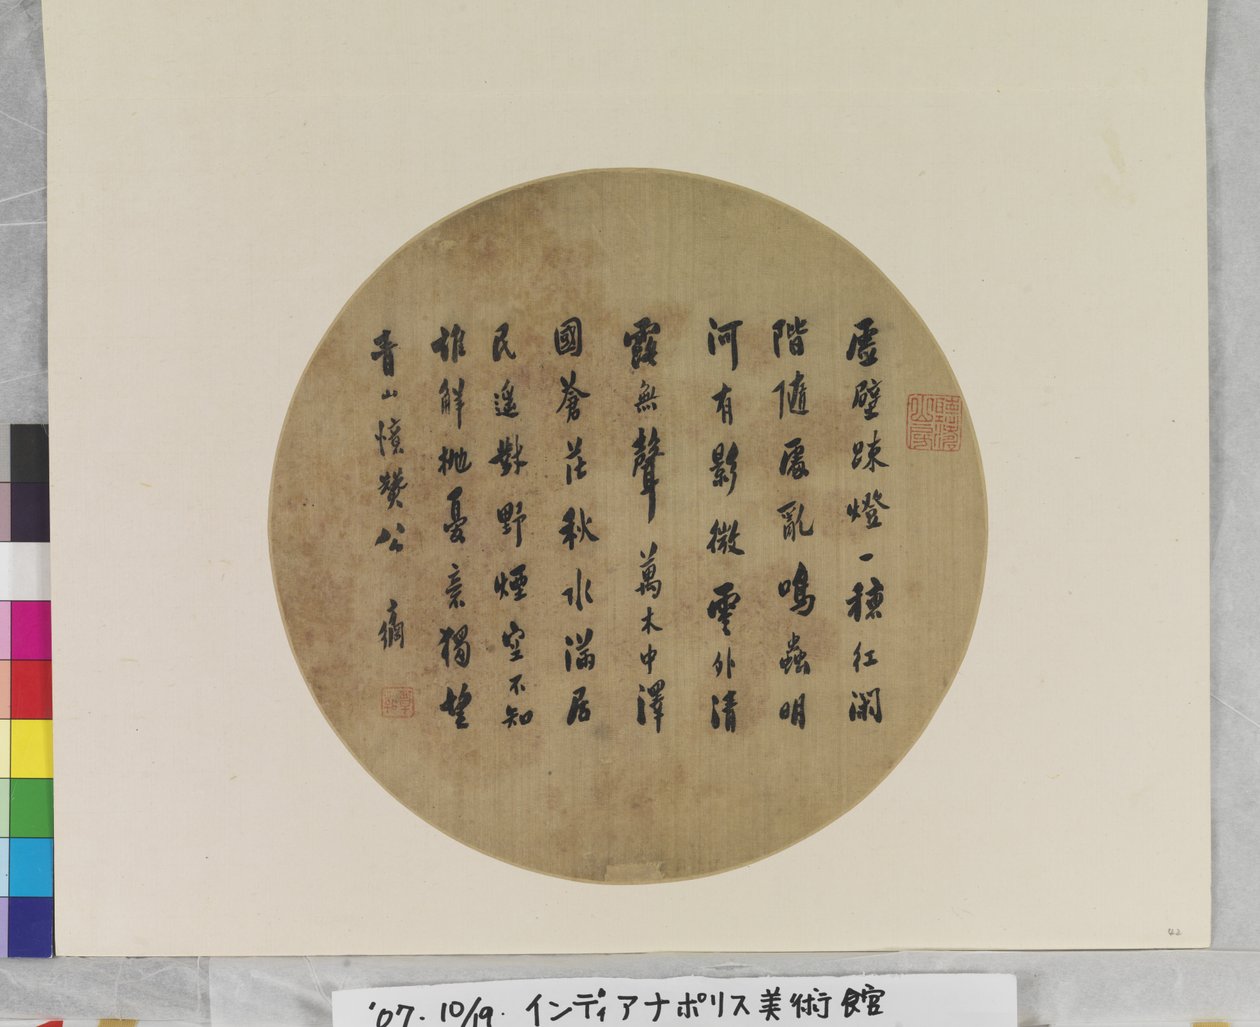 虛壁疎燈一穗紅閑
階隨處亂鳴蟲明
河有影微雲外清
露無聲萬木中澤
國蒼茫秋水滿居
民遙對野煙空不知
誰解抛憂意獨望
青山憶贊公
42
'07.10/19. インディアナポリス美術館